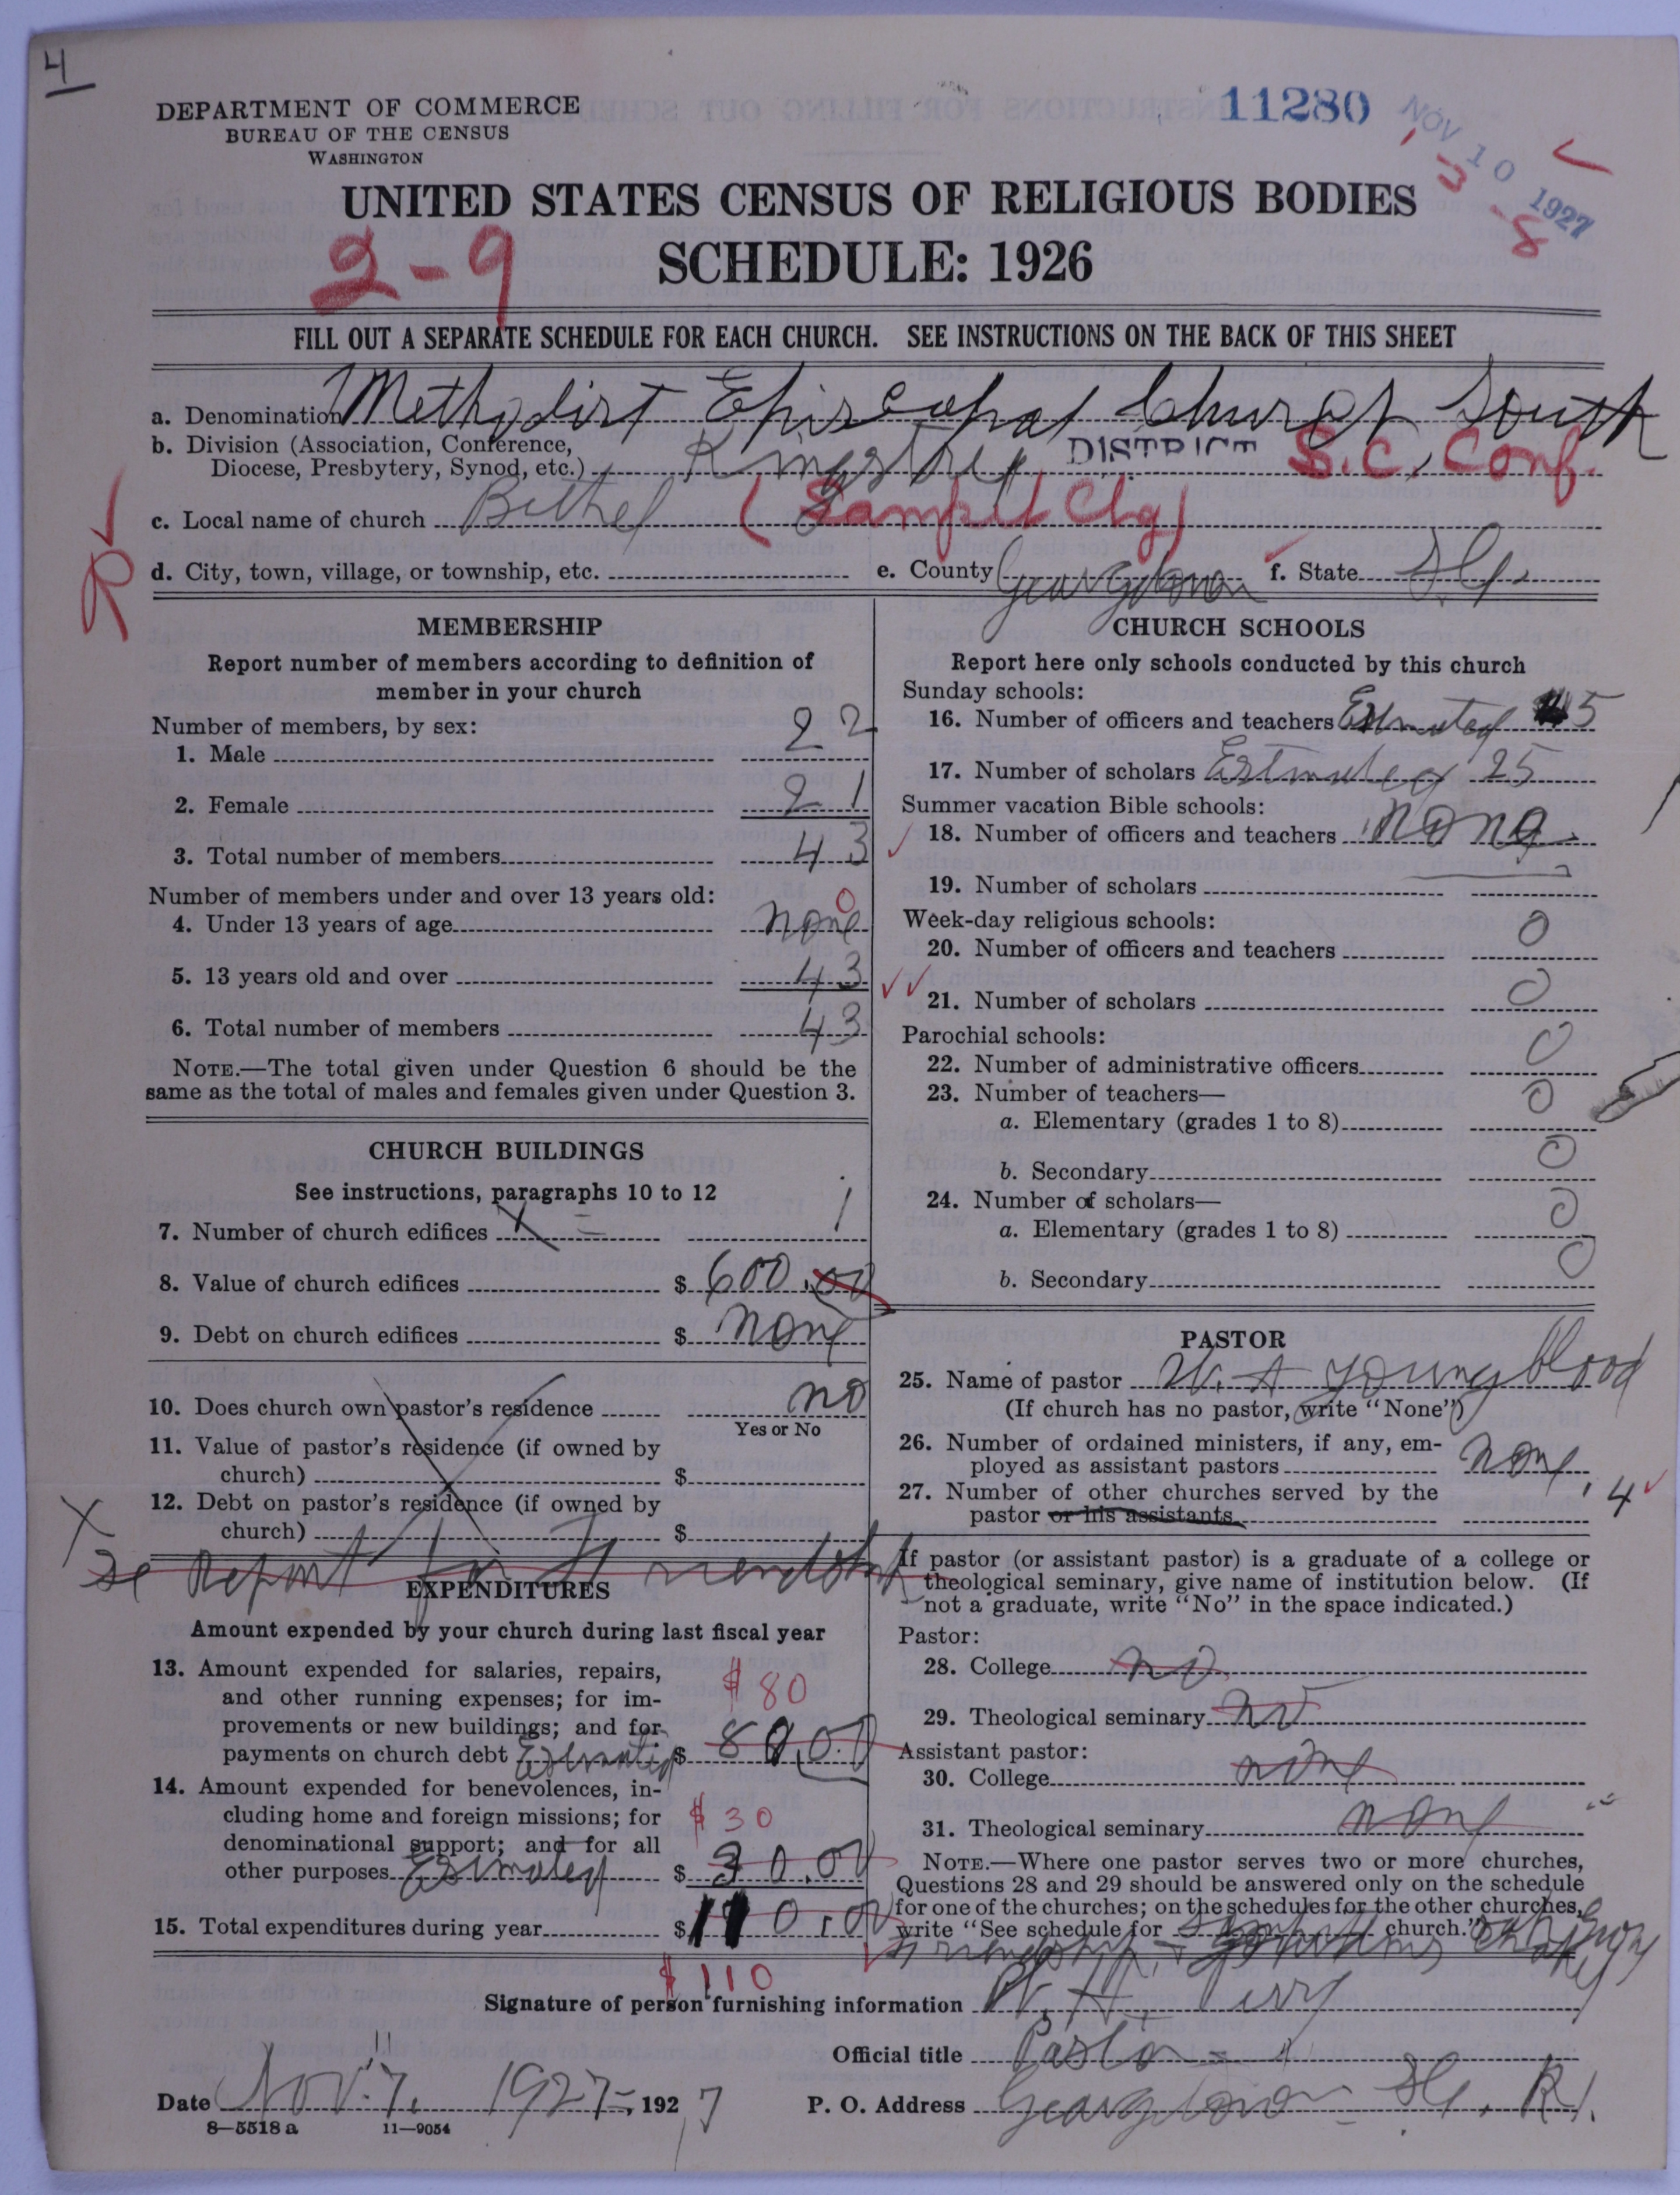 4
DEPARTMENT OF COMMERCE
BUREAU OF THE CENSUS
WASHINGTON
11280
NOV 10 1927
3-8
UNITED STATES CENSUS OF RELIGIOUS BODIES
2-9
SCHEDULE: 1926
FILL OUT A SEPARATE SCHEDULE FOR EACH CHURCH. SEE INSTRUCTIONS ON THE BACK OF THIS SHEET
a. Denomination Methodist Episcopal Church South
b. Division (Association, Conference,
Diocese, Presbytery, Synod, etc.) Kingstree DISTRICT S.C. Conf.
c. Local name of church Bethel (Sampit Chg)
R
d. City, town, village, or township, etc. e. County Georgetown f. State S.C.
MEMBERSHIP
Report number of members according to definition of
member in your church
Number of members, by sex:
1. Male 22
2. Female 21
3. Total number of members 43
Number of members under and over 13 years old:
4. Under 13 years of age none 0
5. 13 years old and over 43
6. Total number of members 43
NOTE.—The total given under Question 6 should be the
same as the total of males and females given under Question 3.
CHURCH BUILDINGS
See instructions, paragraphs 10 to 12
7. Number of church edifices 1
8. Value of church edifices $ 600.00
9. Debt on church edifices $ none
10. Does church own pastor's residence no
Yes or No
11. Value of pastor's residence (if owned by
church) $
12. Debt on pastor's residence (if owned by
church) $
X
Se Report for Friendship
EXPENDITURES
Amount expended by your church during last fiscal year
13. Amount expended for salaries, repairs,
and other running expenses; for im-
provements or new buildings; and for
payments on church debt Estimated $ 80.00
$80
14. Amount expended for benevolences, in-
cluding home and foreign missions; for
denominational support; and for all
other purposes Estimated $ 30.00
$30
15. Total expenditures during year $ 110.00
$110
CHURCH SCHOOLS
Report here only schools conducted by this church
Sunday schools:
16. Number of officers and teachers Estimated 5
17. Number of scholars Estimated 25
Summer vacation Bible schools:
18. Number of officers and teachers none
19. Number of scholars
Week-day religious schools:
20. Number of officers and teachers 0
21. Number of scholars 0
Parochial schools:
22. Number of administrative officers 0
23. Number of teachers—
a. Elementary (grades 1 to 8) 0
b. Secondary 0
24. Number of scholars—
a. Elementary (grades 1 to 8) 0
b. Secondary 0
PASTOR
25. Name of pastor W. A Youngblood
(If church has no pastor, write "None")
26. Number of ordained ministers, if any, em-
ployed as assistant pastors none
27. Number of other churches served by the
pastor or his assistants 4
If pastor (or assistant pastor) is a graduate of a college or
theological seminary, give name of institution below. (If
not a graduate, write "No" in the space indicated.)
Pastor:
28. College no
29. Theological seminary no
Assistant pastor:
30. College none
31. Theological seminary none
NOTE.—Where one pastor serves two or more churches,
Questions 28 and 29 should be answered only on the schedule
for one of the churches; on the schedules for the other churches,
write "See schedule for church."
Friendship
Signature of person furnishing information
Official title Pastor
Date Nov. 7. 1927, 1927
P. O. Address Georgetown S.C. R1.
8—5518 a 11—9054